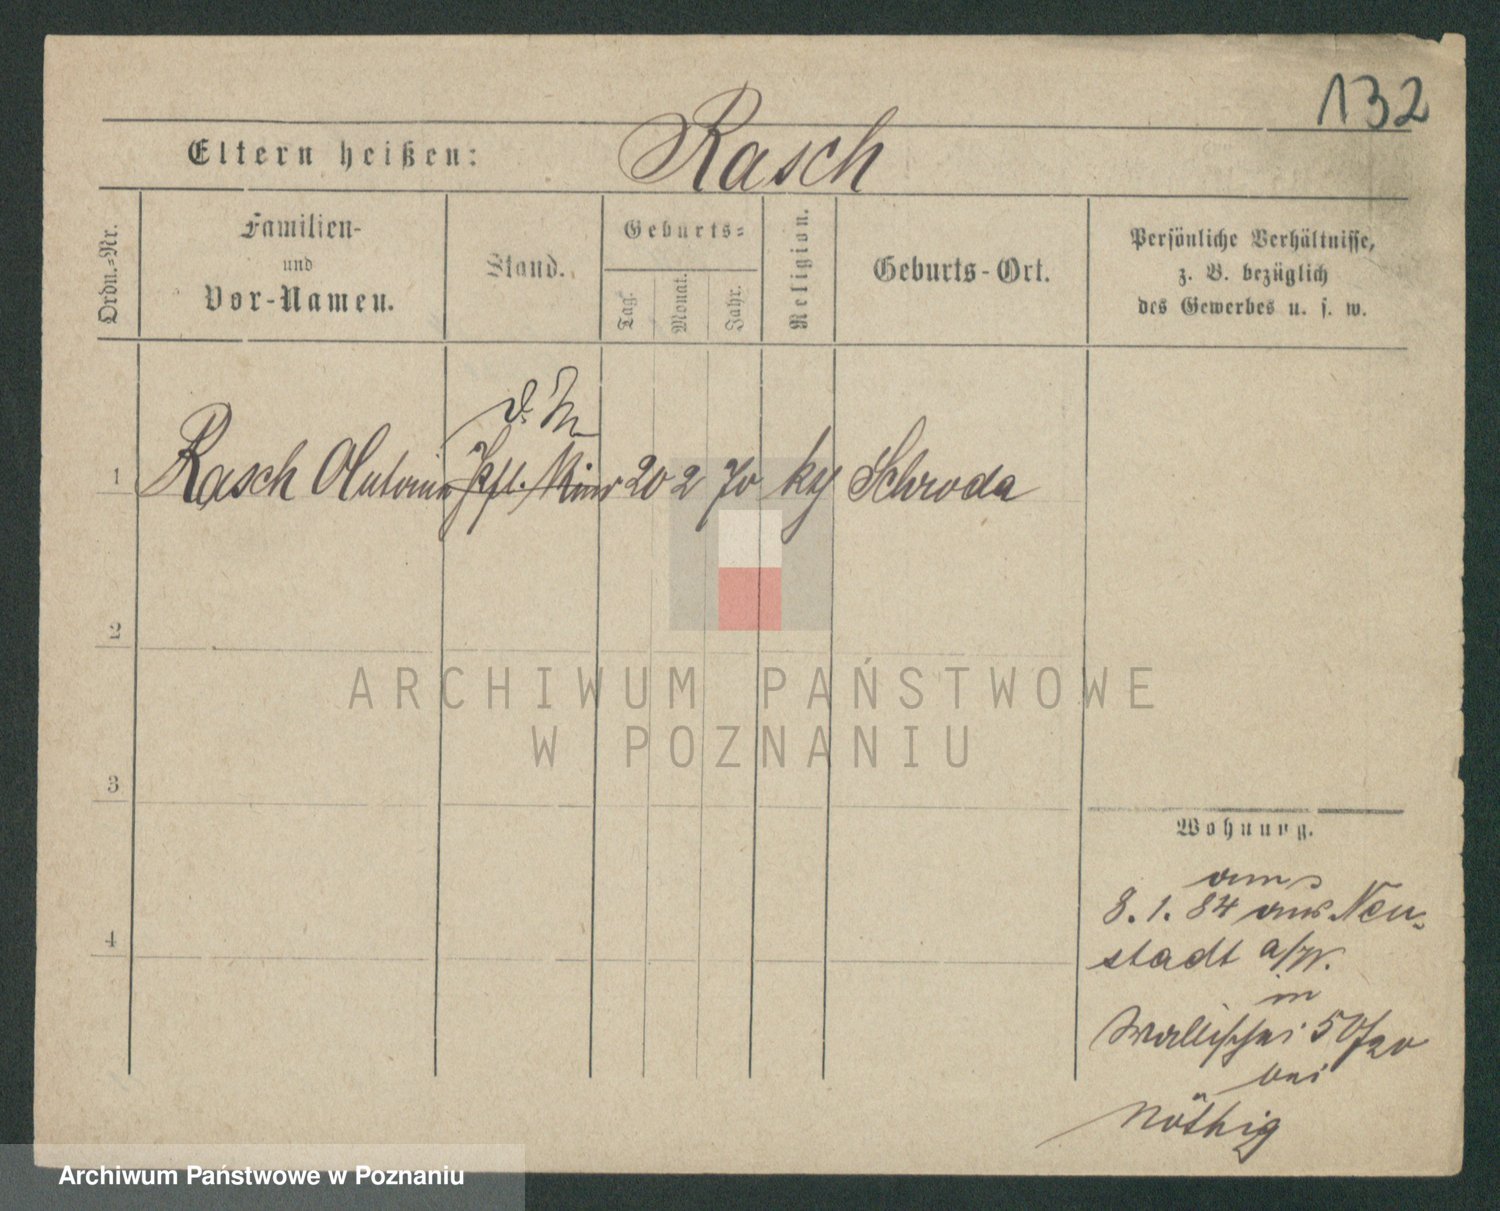 132
Eltern heißen: Rasch
Ordn.-Nr.
Familien-
und
Vor-Namen.
Stand.
Geburts-
Tag.
Monat.
Jahr.
Religion.
Geburts-Ort.
Persönliche Verhältnisse,
z. B. bezüglich
des Gewerbes u. s. w.
1 Rasch 20 2 70 Schroda
2
3
4
Wohnung.
8.1.84 aus Neu-
stadt a/W.
in
Wallischei 50/20
bei
Nöthig
ARCHIWUM PAŃSTWOWE
W POZNANIU
Archiwum Państwowe w Poznaniu